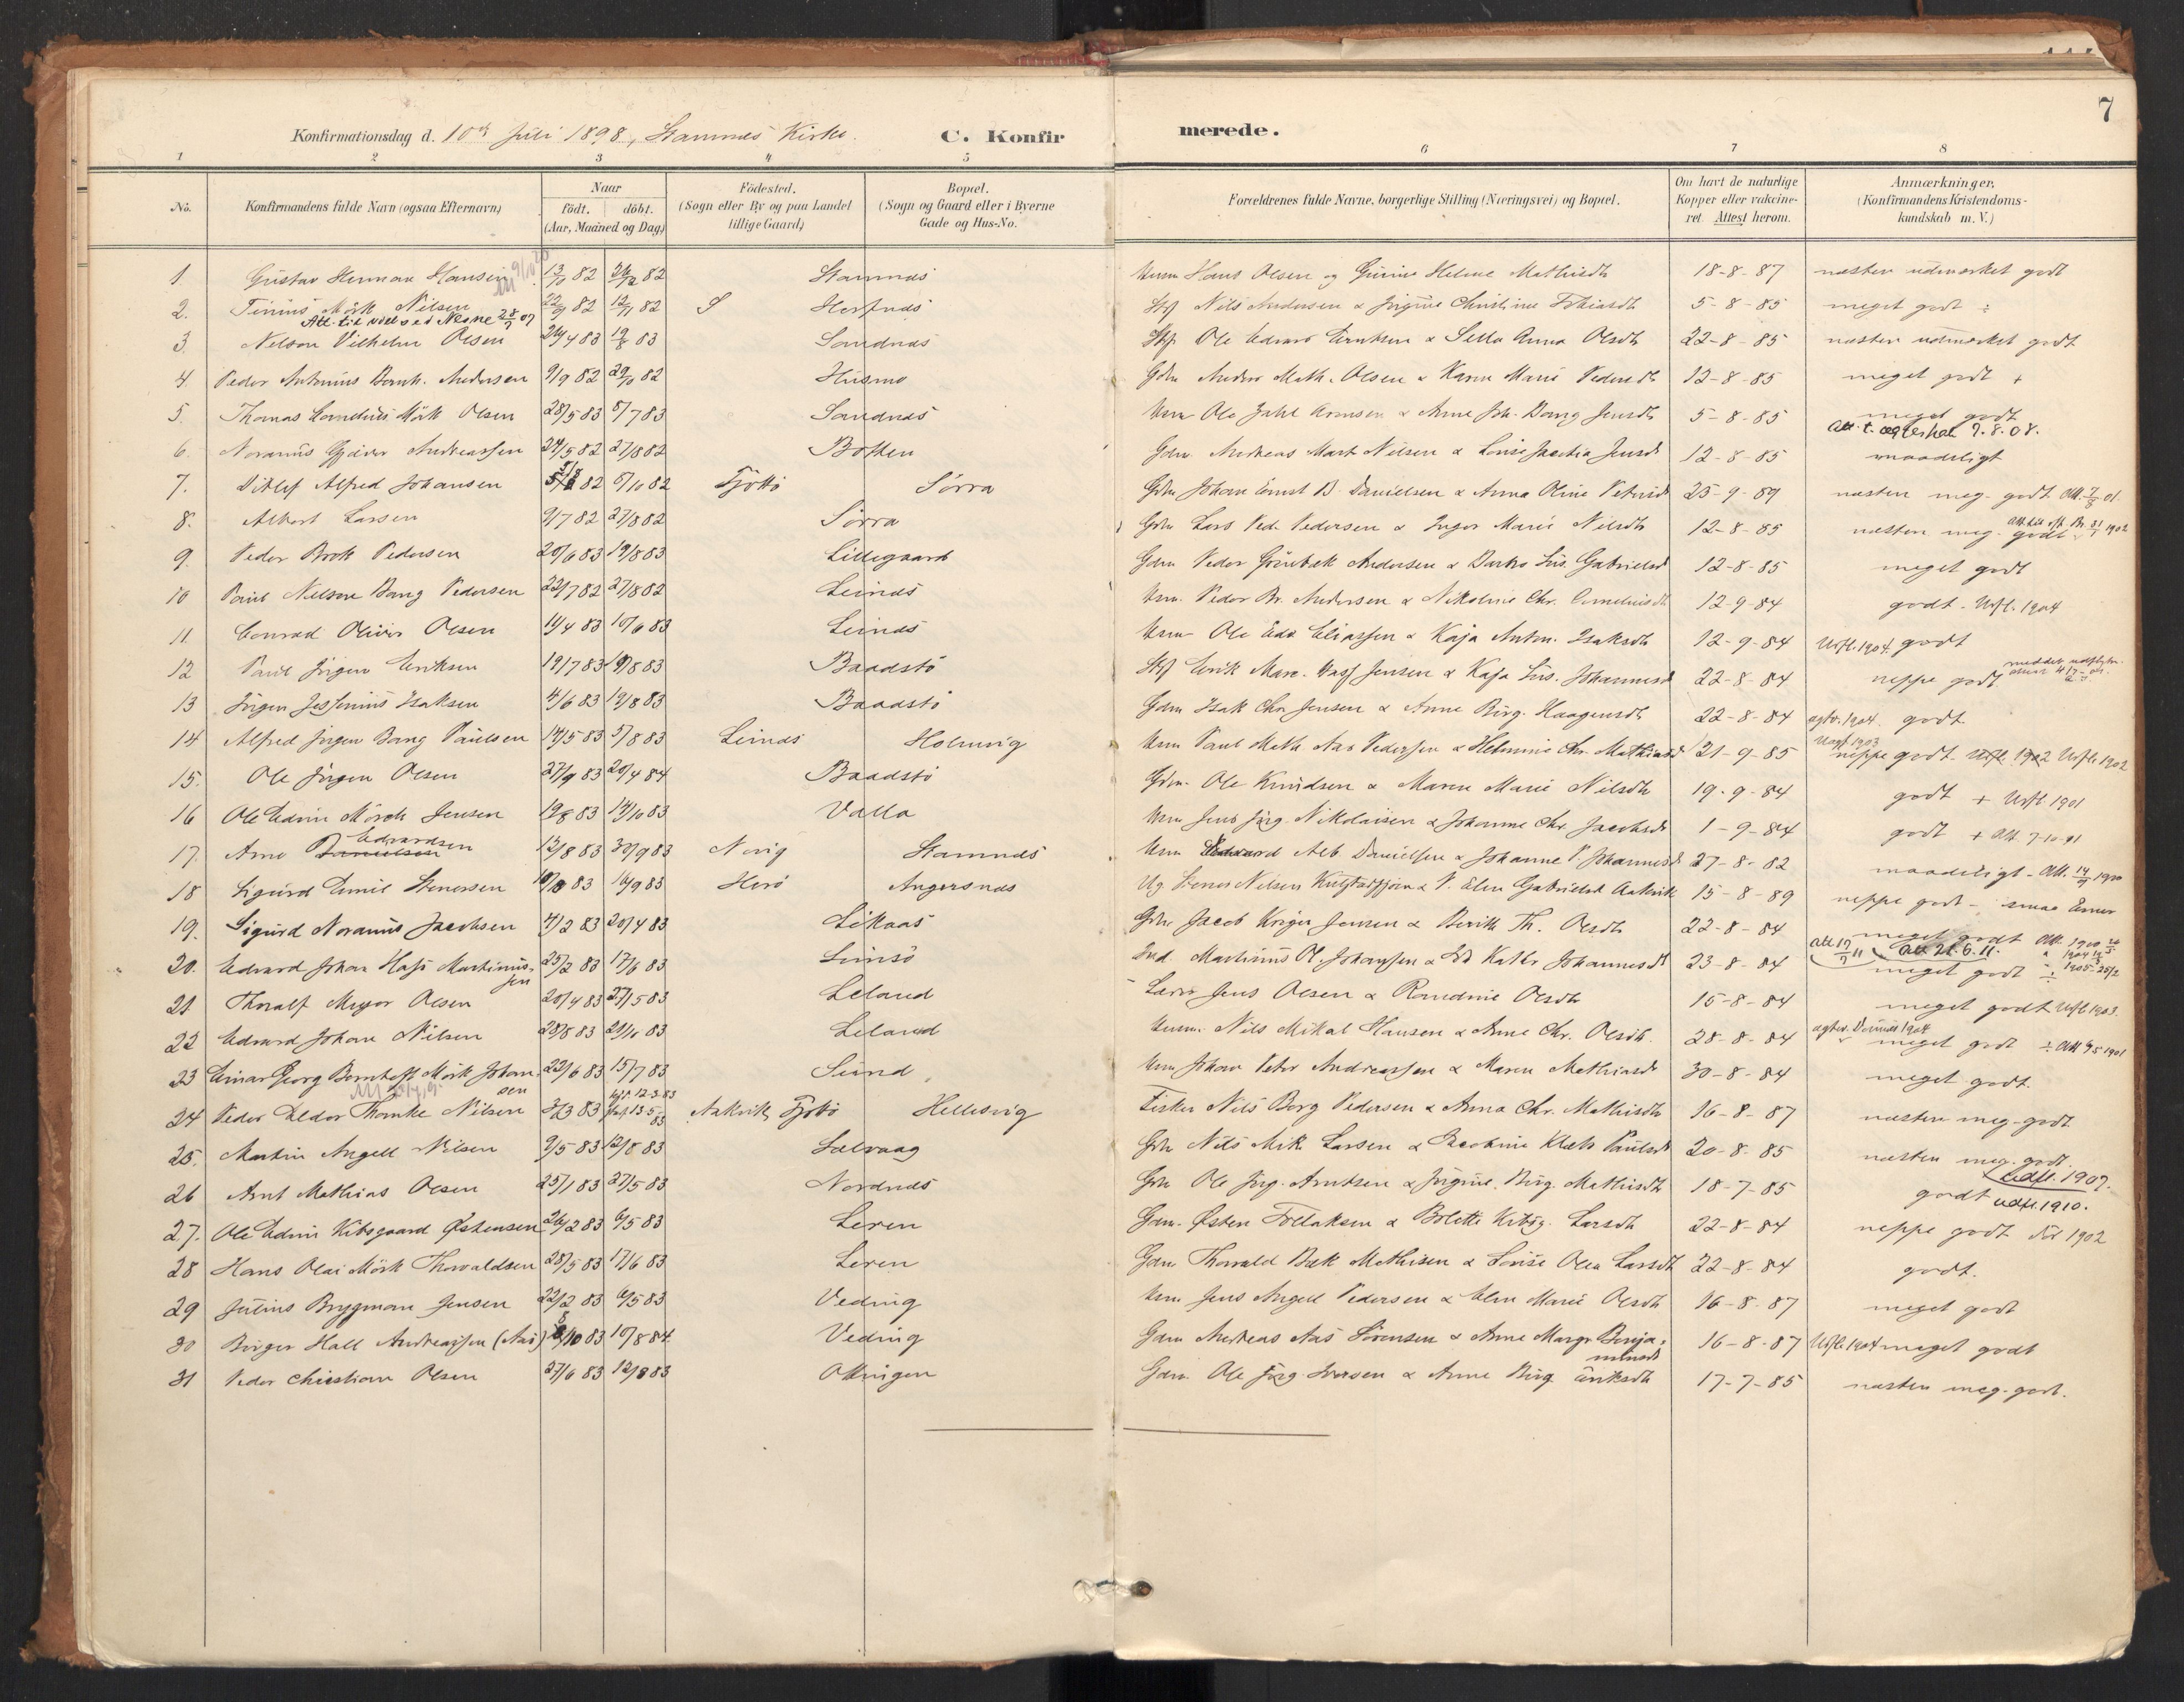 7
Konfirmationsdag d. 10de Juli 1898, Stamnes Kirke. C. Konfirmerede.
1 2 3 4 5 6 7 8
No. Konfirmandens fulde Navn (ogsaa Efternavn) Naar født. døbt. (Aar, Maaned og Dag) Födested. (Sogn eller By og paa Landet tillige Gaard) Bopæl. (Sogn og Gaard eller i Byerne Gade og Hus-No. Forældrenes fulde Navne, borgerlige Stilling (Næringsvei) og Bopæl. Om havt de naturlige Kopper eller vakcineret. Attest herom. Anmærkninger, (Konfirmandens Kristendomskundskab m. V.)
1. Gustav Herman Hansen 13/10 82 26/12 82 Stamnes Hans Olsen og Gurine Helene Mathisdtr 18-8-87 næsten udmærket godt
2. Tinius Mörk Nilsen 22/9 82 12/11 82 Herfnes Nils Andersen & Jörgine Christine 5-8-85 meget godt ÷
Att. til vielsed Nesne 28/7 07
3. Nelson Vilhelm Olsen 24/4 83 19/8 83 Sandnes Ole Edvard Eriksen & Sella Anna Olsdtr 22-8-85 næsten udmærket godt
4. Peder Antonius Bernh. Andersen 9/9 82 29/10 82 Husmo Gdm Anders Math. Olsen & Karen Marie Pedersdtr 12-8-85 meget godt +
5. Thomas Cornelius Mörk Olsen 28/5 83 8/7 83 Sandnes Ole Jahl Arensen & Anne Joh. Dang Jensdtr 5-8-85 meget godt
Att. t. ægteskab 9.8.08.
6. Noranus Gjæver Andreassen 24/5 82 27/8 82 Botten Gdm Andreas Mart Nilsen & Lovise Jensdtr 12-8-85 maadeligt
7. Ditlef Alfred Johansen 82 8/10 82 Tjöttö Sörra Gdm Johan Ernst B. Danielsen & Anna Oline Petersdtr 25-9-89 næsten meg. godt Att. 7/8 01.
8. Albert Larsen 9/7 82 27/8 82 Sörra Gdm Lars Ped. Pedersen & Inger Marie Nilsdtr 12-8-85 næsten meg. godt 1902
9. Peder Brok Pedersen 20/6 83 19/8 83 Lillegaard Gdm Peder Grönbek Andersen & Dorthe Gabrielsd 12-8-85 meget godt
10 Paul Nelson Dang Pedersen 22/7 82 27/8 82 Leines Peder Br. Andersen & Nikoline Chr. Corneliusdtr 12-9-84 godt. Utfl. 1904
11 Conrad Oliver Olsen 11/4 83 10/6 83 Leines Ole Edv. Eliassen & Kaja Anton. Isaksdtr 12-9-84 Utfl. 1904. godt
12 Paul Jörgen Eriksen 19/7 83 19/8 83 Baadstö Erik Mar. Hass Jensen & Kaja Johannesd 22-8-84 neppe godt
13 Jörgen Jessenius Isaksen 4/6 83 19/8 83 Baadstö Gdm Isak Chr Jensen & Anne Birg. Haagensdtr 22-8-84 ægtv. 1904. godt
14 Alfred Jörgen Dang Paulsen 14/5 83 5/8 83 Leines Holmvig Paul Math Aas Pedersen & Helmine Chr. Mathiasd 21-9-85 neppe godt. Utfl. 1902
15. Ole Jörgen Olsen 27/9 83 20/4 84 Baadstö Gdm. Ole Knudsen & Maren Marie Nilsdtr 19-9-84 godt + Utfl. 1901
16 Ole Edvin Mörch Jensen 19/8 83 14/10 83 Valla Jens Jörg. Nikolaisen & Johanne Chr. Jacobsdt 1-9-84 godt + Att. 7-10-01
17. Arne Danielsen Edvardsen 12/8 83 30/9 83 Norig Stamnes Edvard Alb. Danielsen & Johanne P. Johannesd 27-8-82 maadeligt - Att. 14/9 1900
18 Sigurd Emil Stenersen 83 16/9 83 Herö Angersnes Ug. Stener Nilsen & P. Elen Gabrielsd Aakvik 15-8-89 neppe godt - smaa Evner
19. Sigurd Noranus Jacobsen 4/2 83 20/4 83 Likaas Gdm Jacob Kröger Jensen & Berith Th. Olsdtr 22-8-84 meget godt
Att. 17/7 11 Att 21.6.11.
20. Edvard Johan Hass Martinussen 25/2 83 17/6 83 Martinus Ol. Johanssen & Kathr Johannesdt 23-8-84 meget godt ÷
21 Thoralf Meyer Olsen 20/4 83 27/5 83 Leland Jens Olsen & Randine Olsdtr 15-8-84 meget godt Utfl. 1903.
22 Edvard Johan Nilsen 28/8 83 83 Leland Nils Mikal Hansen & Anne Chr. Olsdtr. 28-8-84 ægtev. 1904 meget godt ÷
23 Einar Georg Bernhoft Mörk Johansen 22/6 83 15/7 83 Sund Johan Peter Andreassen & Maren Mathiasdt 30-8-84 meget godt.
24 Peder Eldor Thonke Nilsen 83 Aakvik Tjötö Hellesvig Fisker Nils Borg Pedersen & Anna Chr. Mathisdtr 16-8-87 næsten meg. godt
25. Martin Angell Nilsen 9/5 83 12/8 83 Salvaag Gdm Nils Mik. Larsen & Jacobine Paulsdt 20-8-85 næsten meg. godt. Udfl. 1907.
26 Arnt Mathias Olsen 25/1 83 27/5 83 Nordnes Gdm Ole Jörg. Arntsen & Jörgine. Birg. Mathisdtr 18-7-85 godt udfl. 1910.
27. Ole Edvin Kibsgaard Östensen 26/2 83 6/5 83 Leren Gdm. Östen Tollaksen & Bolette Kibsg. Larsdtr 22-8-84 neppe godt 1902
28 Hans Olai Mörk Thorvaldsen 28/5 83 17/6 83 Leren Gdm Thorvald Bæk Mathisen & Lovise Olea Larsdtr 22-8-84 godt.
29 Julius Brygman Jensen 22/2 83 6/5 83 Veding Jens Angell Pedersen & Elen Marie Olsdtr 16-8-87 meget godt
30 Birger Hall Andreassen (Aas) 8/10 83 10/8 84 Veding Gdm Andreas Aas Sörensen & Anne Margr Benjaminsdt 16-8-87 Utfl. 1904 meget godt
31 Peder Christian Olsen 27/6 83 12/8 83 Ottingen Gdm. Ole Jörg. Iversen & Anne Birg Eriksdtr 17-7-85 næsten meg. godt.